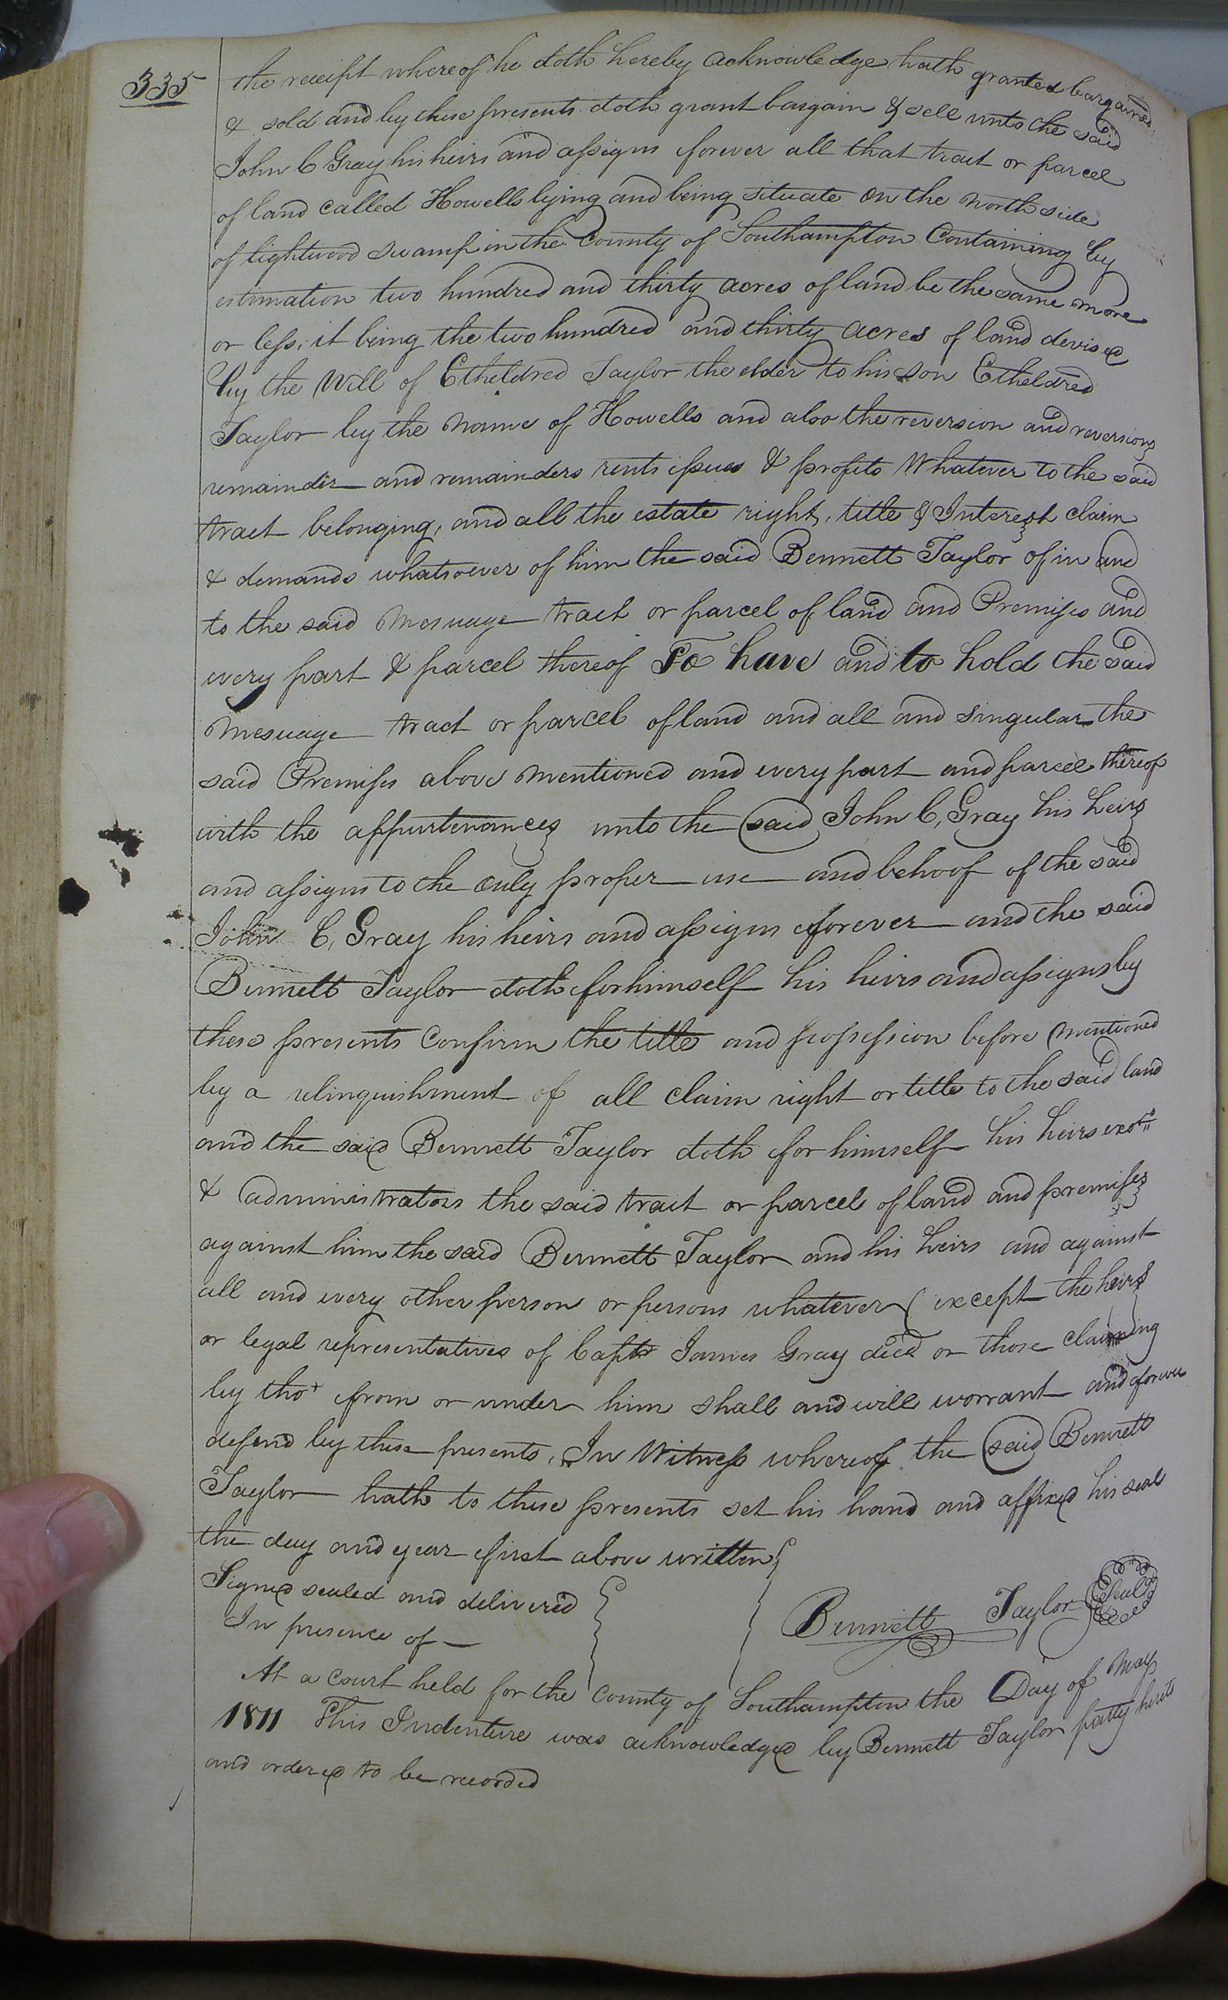 335
the receipt whereof he doth hereby acknowledge hath granted bargained
& sold and by these presents doth grant bargain & sell unto the said
John C Gray his heirs and assigns forever all that tract or parcel
of land called Howells lying and being situate on the north side
of lightwood swamp in the County of Southampton Containing by
estimation two hundred and thirty acres of land be the same more
or less, it being the two hundred and thirty acres of land devised
by the Will of Etheldred Taylor the elder to his son Etheldred
Taylor by the Name of Howells and also the reversion and reversions
remainder and remainders rents issues & profits Whatever to the said
tract belonging, and all the estate right, title & Interest claim
& demands whatsoever of him the said Bennett Taylor of in and
to the said Mesuage tract or parcel of land and Premises and
every part & parcel thereof To have and to hold the said
Mesuage tract or parcel of land and all and singular the
said Premises above mentioned and every part and parcel thereof
with the appurtenances unto the said John C, Gray his heirs
and assigns to the only proper use and behoof of the said
John C, Gray his heirs and assigns forever and the said
Bennett Taylor doth for himself his heirs and assigns by
these presents Confirm the title and possession before mentioned
by a relinquishment of all claim right or title to the said land
and the said Bennett Taylor doth for himself his heirs exors
& administrators the said tract or parcel of land and premises
against him the said Bennett Taylor and his heirs and against
all and every other person or persons whatever (except the heirs
or legal representatives of Capt James Gray decd or those claiming
by tho' from or under him shall and will worrant and forever
defend by these presents, In Witness whereof the said Bennett
Taylor hath to these presents set his hand and affixed his seal
the day and year first above written
Signed sealed and delivered
In presence of
Bennett Taylor Seal
At a court held for the County of Southampton the Day of May
1811 This Indenture was acknowledged by Bennett Taylor party hereto
and ordered to be recorded